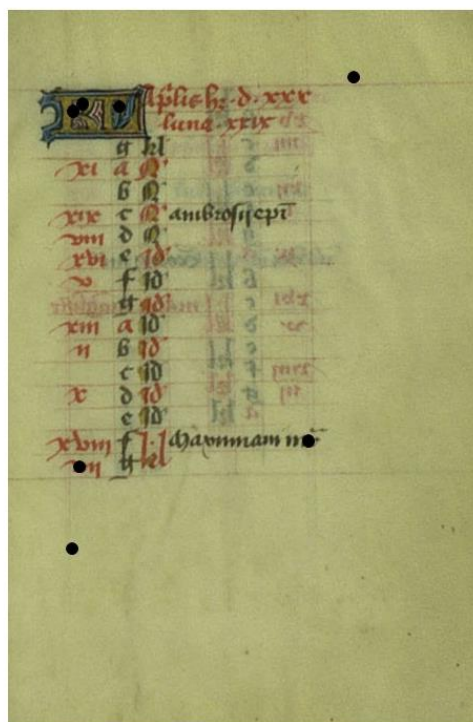 KL Aprilis hꝫ · d · xxx
luna · xxix
g kl
xi a N
b N
xix c N ambrosij epi
viii d N
xvi e id
v f id
g id
xiii a id
ii b id
c id
x d id
e id
xviii f kl
g kl